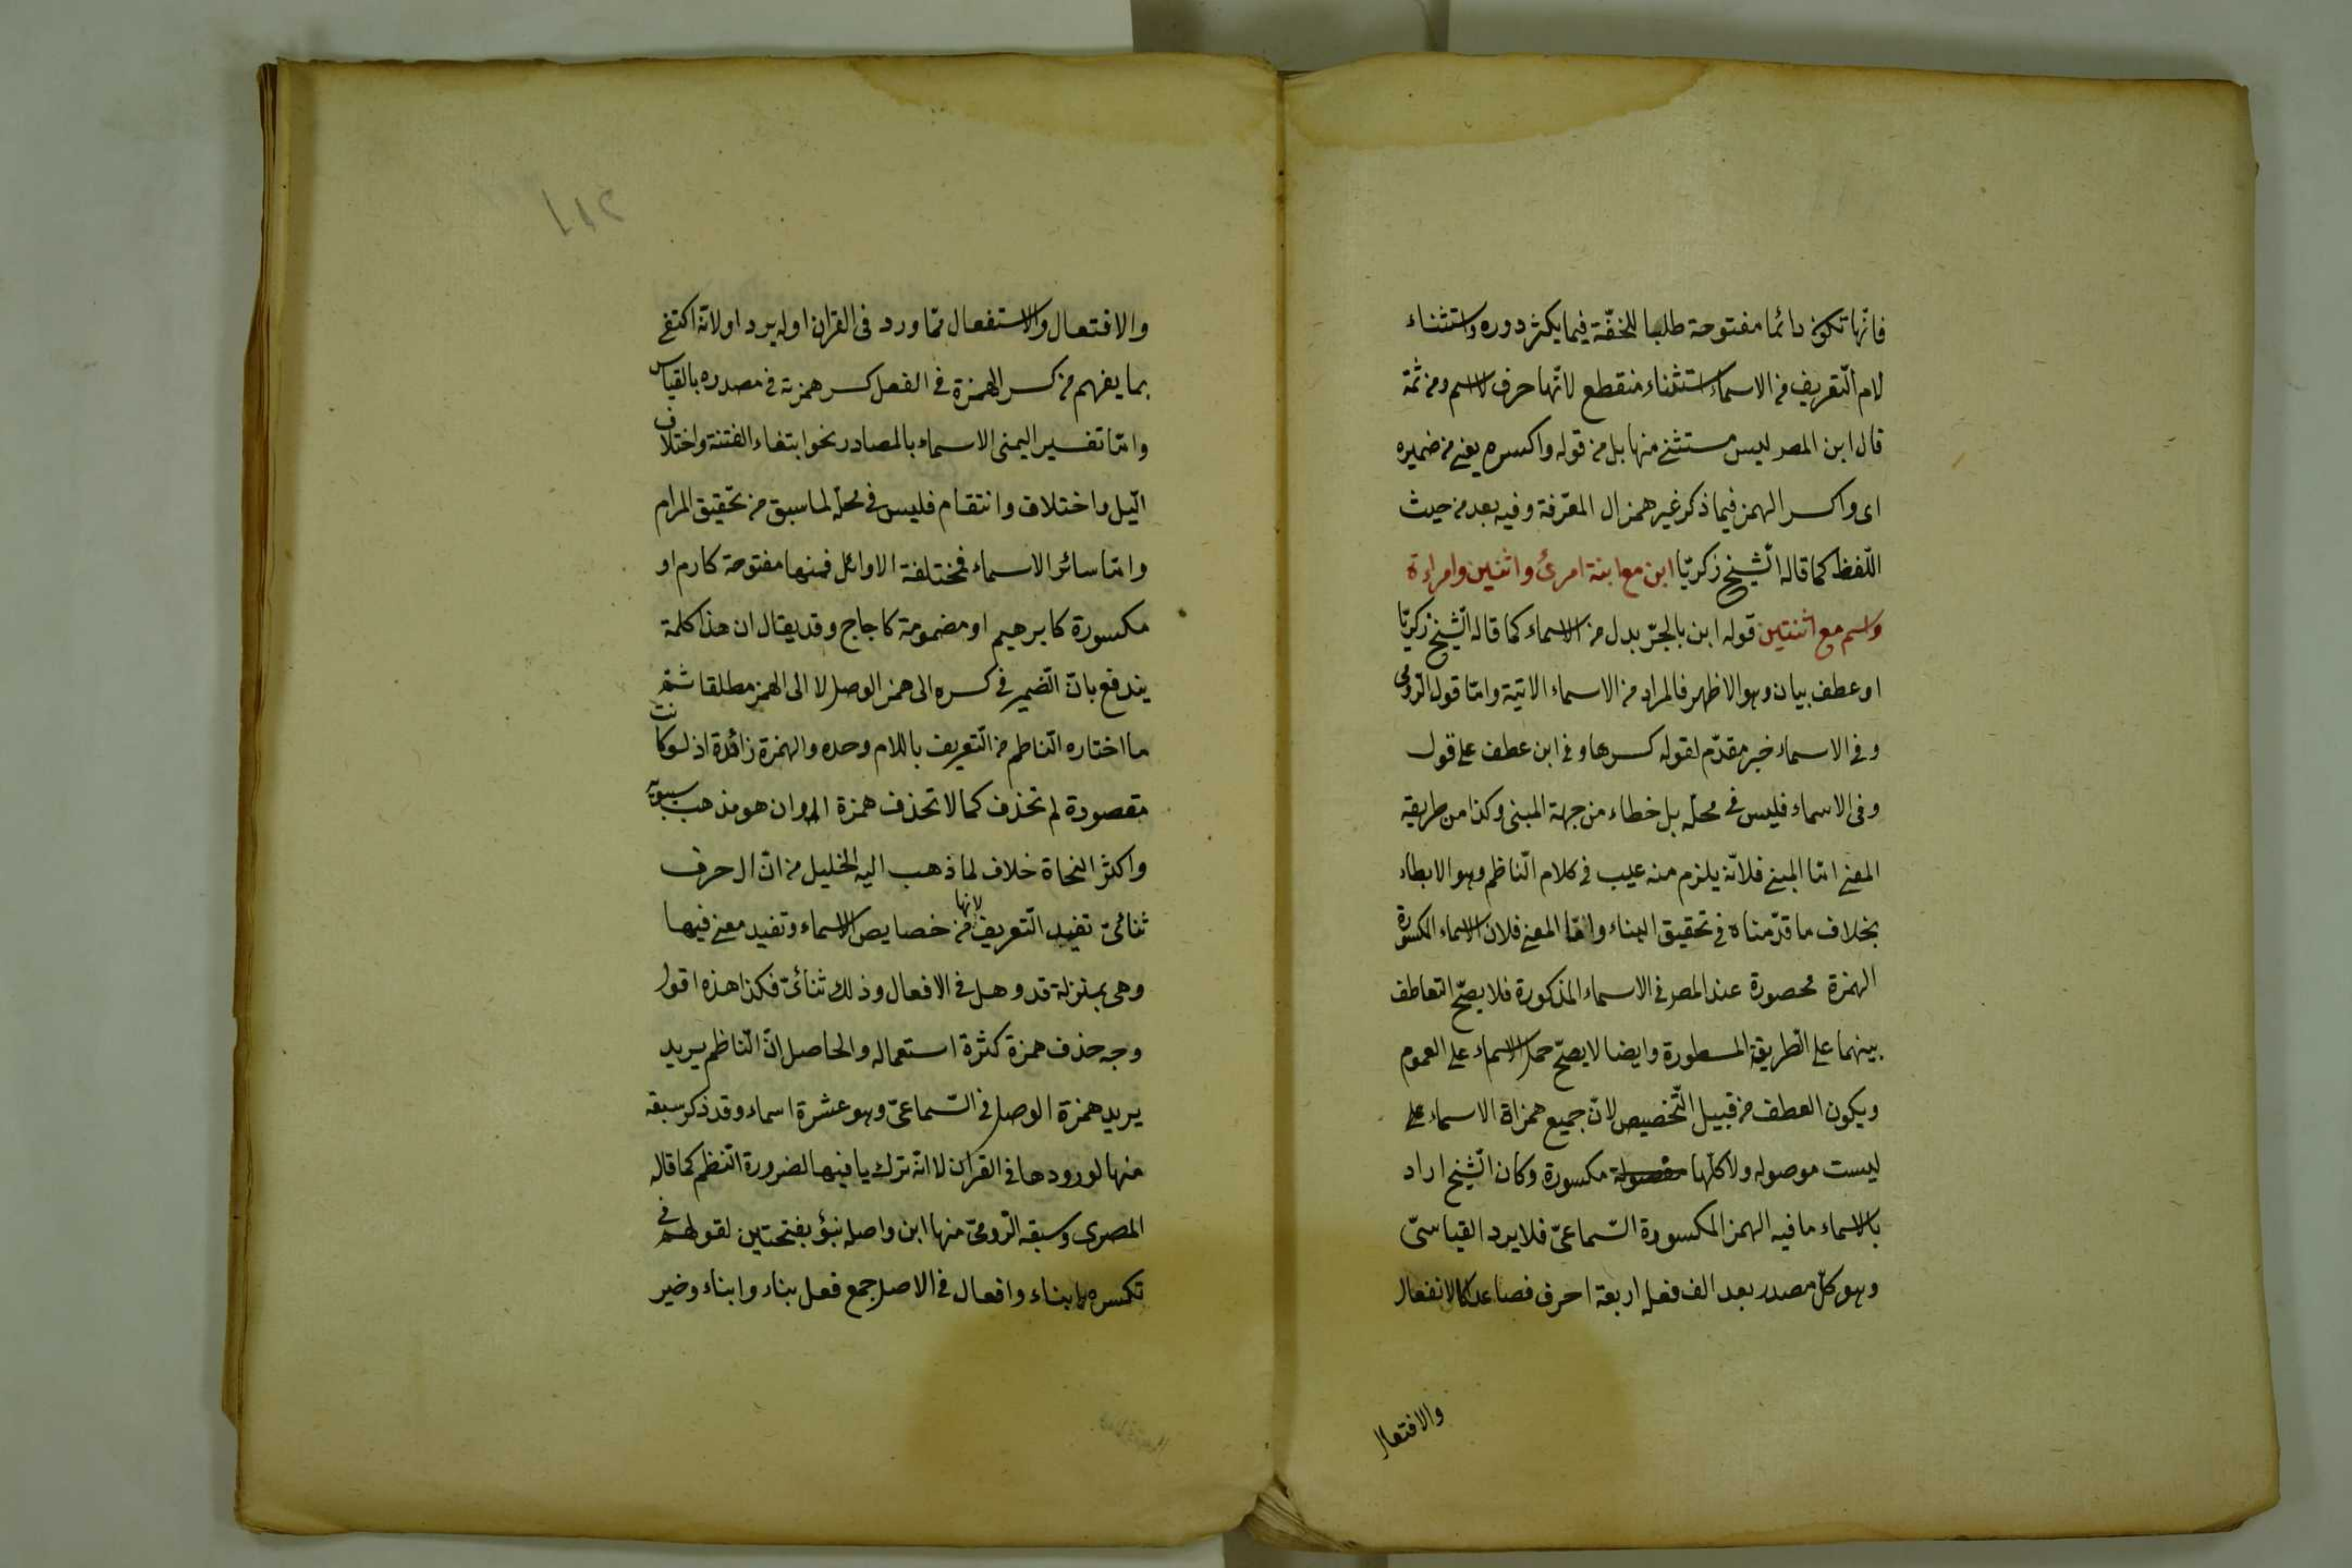 فانّها تكون دائما مفتوحة طلبا للخفّة فيما يكثر دوره واستثناء
لام التّعريف من الاسماء استثناء منقطع لانّها حرف لا اسم ومن ثمة
قال ابن المصر ليس مستثنى منها بل من قوله واكسره يعنى من ضميره
اى واكسر الهمز فيما ذكر غير همز ال المعرّفة وفيه بعد من حيث
اللّفظ كما قاله الشّيخ زكريّا ابن مع ابنة امرئ واثنين وامراءة
واسم مع اثنتين قوله ابن بالجرّ بدل من الاسماء كما قاله الشّيخ زكريّا
او عطف بيان وهو الاظهر فالمراد من الاسماء الاتية وامّا قول الرّومى
وفى الاسماء خبر مقدّم لقوله كسرها وفى ابن عطف على قول
وفى الاسماء فليس فى محلّه بل خطاء من جهة المبنى وكذا من طريقة
المعنى امّا المبنى فلانّه يلزم منه عيب فى كلام النّاظم وهو الابطاء
بخلاف ما قدّمناه فى تحقيق البناء وامّا المعنى فلان الاسماء المكسورة
الهمزة محصورة عند المصر فى الاسماء المذكورة فلا يصحّ التعاطف
بينهما على الطّريقة المسطورة وايضا لا يصحّ حمل الاسماء على العموم
ويكون العطف من قبيل التّخصيص لانّ جميع همزاة الاسماء على
ليست موصوله ولا كلّها مكسورة وكان الشّيخ اراد
بالاسماء ما فيه الهمز المكسورة السّماعىّ فلا يرد القياسىّ
وهو كلّ مصدر بعد الف فعله اربعة احرف فصاعدا كالانفعال
والافتعال
والافتعال والاستفعال ممّا ورد فى القران اوله يرد اولانّه اكتفى
بما يفهم من كسر الهمزة فى الفعل كسر همزته فى مصدره بالقياس
وامّا تفسير اليمنى الاسماء بالمصادر نحو ابتغاء الفتنة واختلاف
الّيل واختلاف وانتقام فليس فى محلّه لما سبق من تحقيق المرام
وامّا سائر الاسماء فمختلفة الاوائل فمنها مفتوحة كادم او
مكسورة كابرهيم او مضمومة كاجاج وقد يقال ان هذا كلمة
يندفع بانّ الضّمير فى كسره الى همز الوصل لا الى الهمز مطلقا ثمّ
ما اختاره النّاظم من التّعريف باللام وحده والهمزة زائدة اذ لو كانت
مقصودة لم تحذف كما لا تحذف همزة ام وان هو مذهب سيبويه
واكثر النحاة خلاف لما ذهب اليه الخليل من انّ ال حرف
ثنائىّ تفيد التّعريف لانها من خصايص الاسماء وتفيد معنى فيها
وهى بمنزلة قد وهل فى الافعال وذلك ثنائىّ فكذا هذه اقول
وجه حذف همزة كثرة استعماله والحاصل انّ النّاظم يريد
يريد همزة الوصل فى السّماعىّ وهو عشرة اسماء وقد ذكر سبقه
منها لورودها فى القران لا انّه ترك يا فيها لضرورة النّظم كما قاله
المصرى وسبقه الرّومىّ منها ابن واصله بنؤ بفتحتين لقولهم فى
تكسره ابناء وافعال فى الاصل جمع فعل بناء وابناء وضير